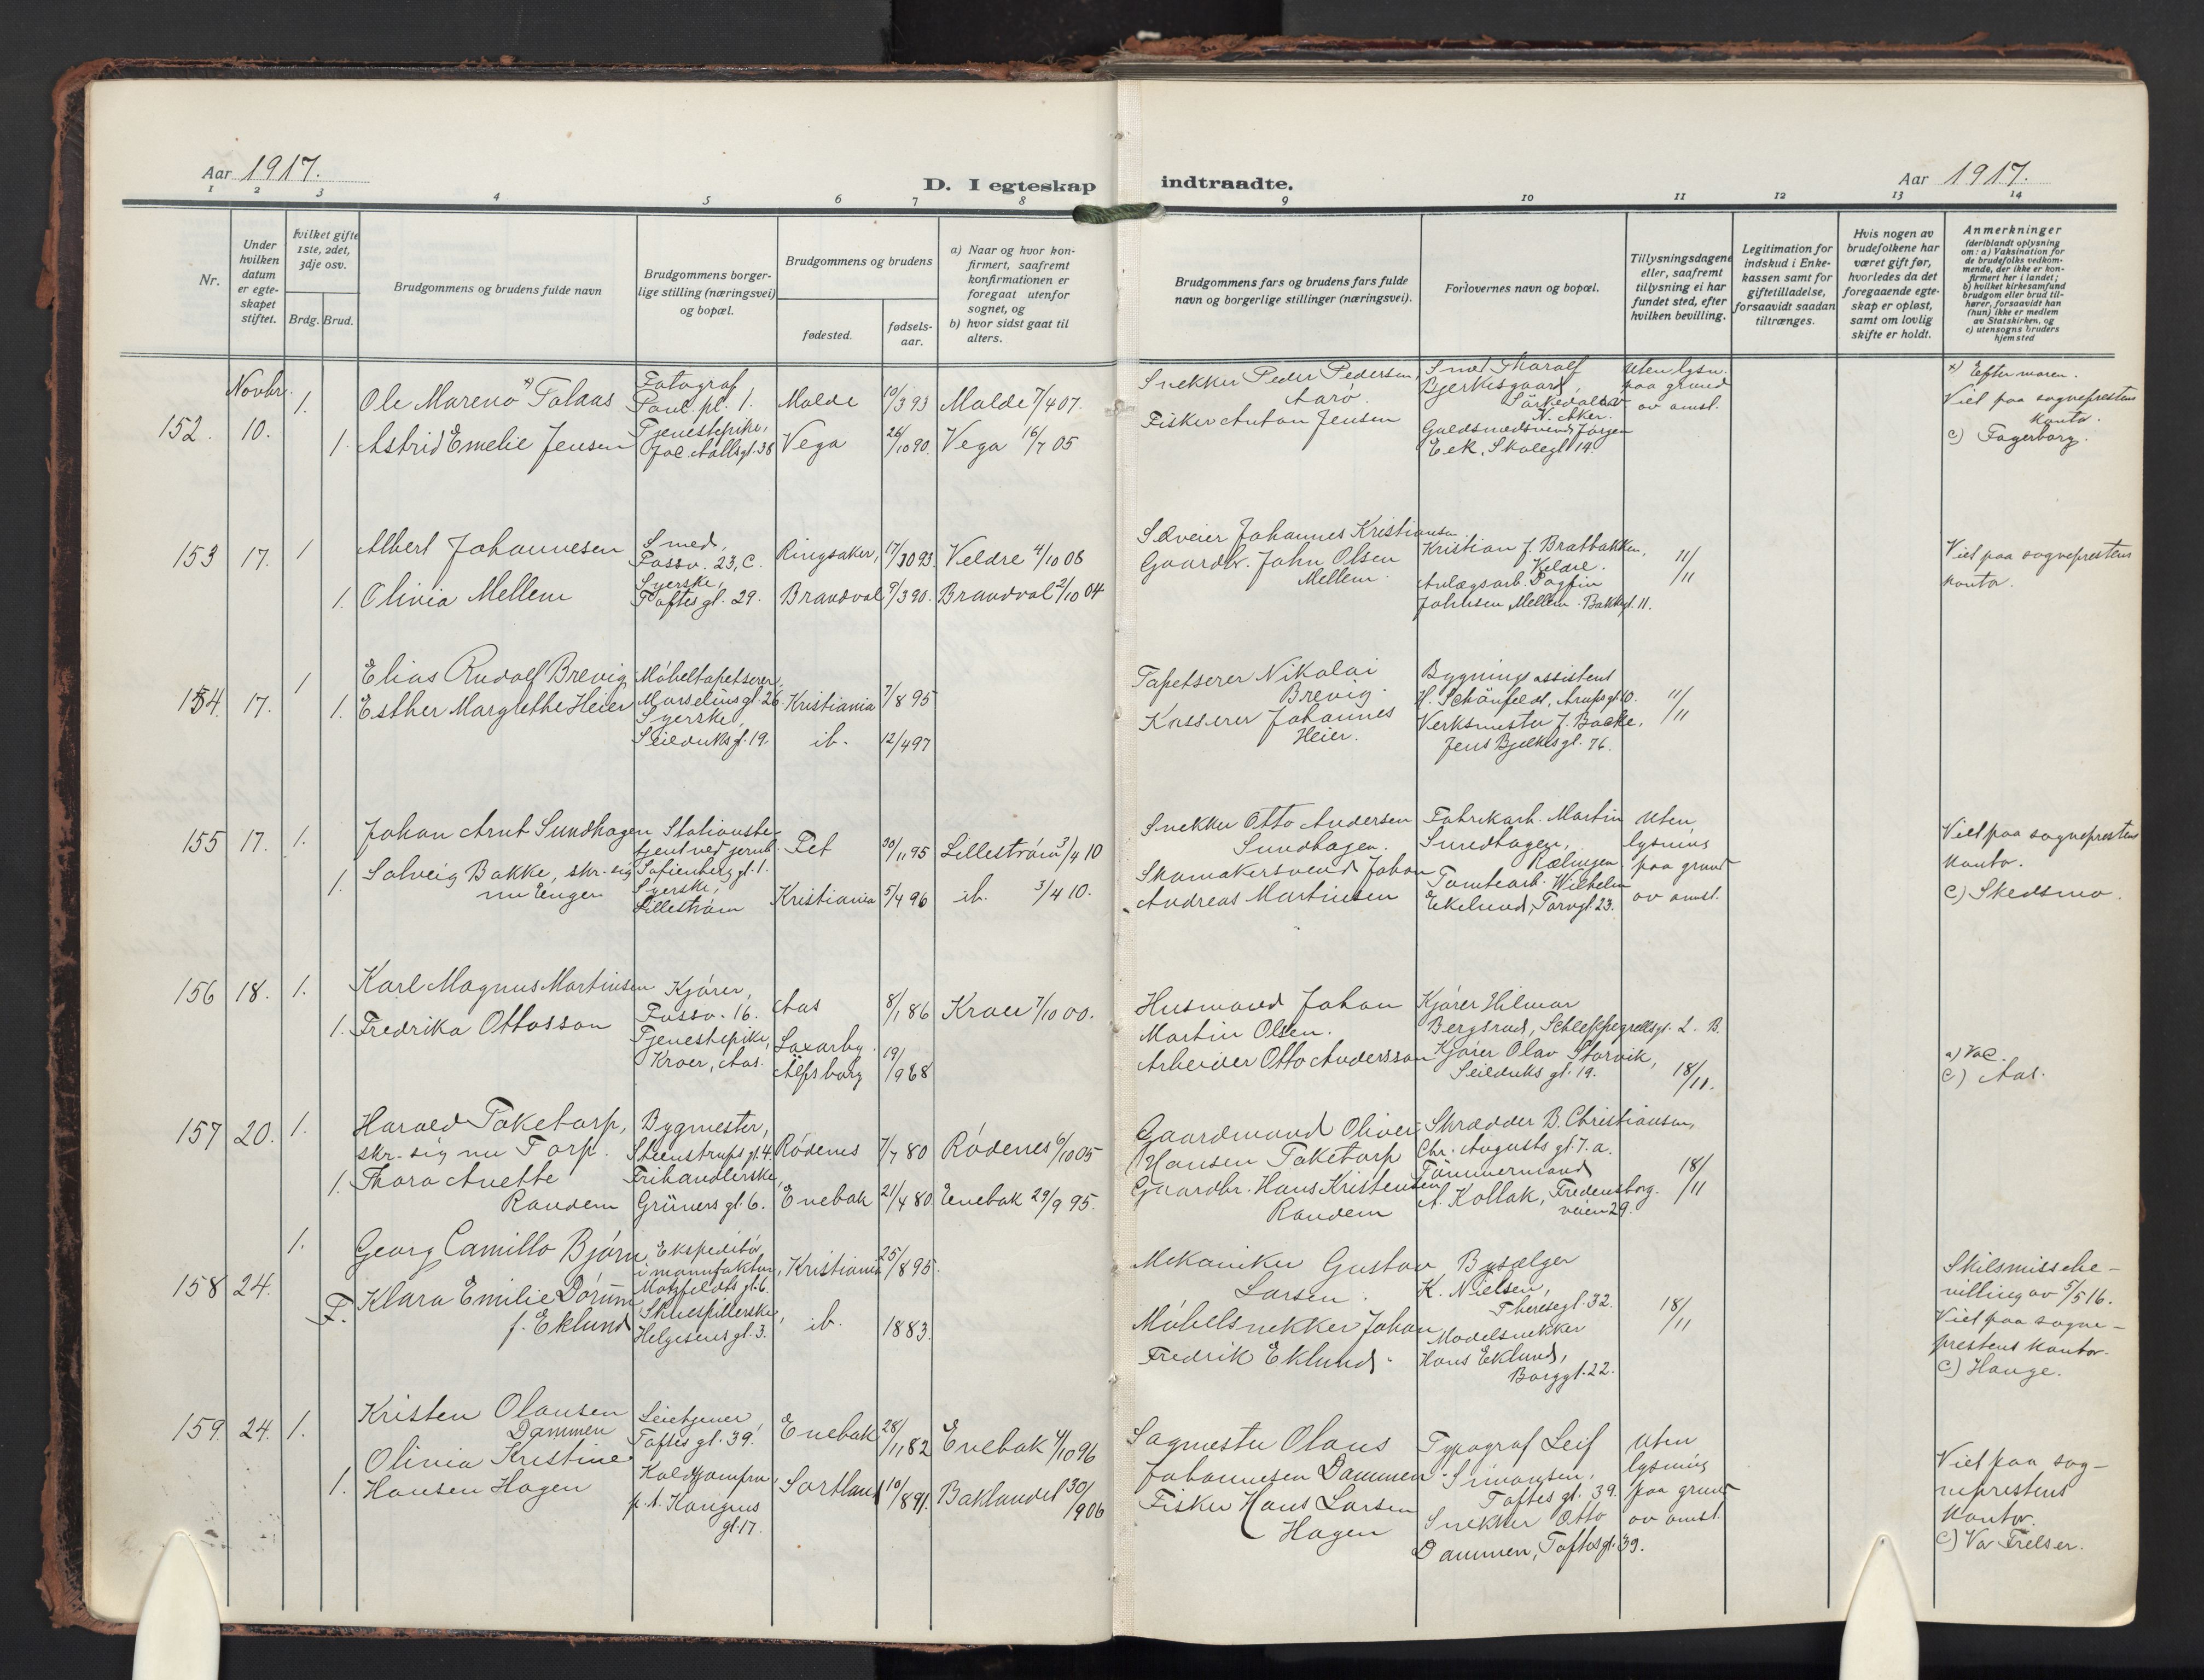 Aar 1917.
D. I egteskap indtraadte.
Aar 1917.
1 2 3 4 5 6 7 8 9 10 11 12 13 14
Nr.
Under hvilken datum er egteskapet stiftet.
Hvilket gifte 1ste, 2det, 3dje osv.
Brdg. Brud.
Brudgommens og brudens fulde navn
Brudgommens borgerlige stilling (næringsvei) og bopæl.
Brudgommens og brudens
fødested.
fødselsaar.
a) Naar og hvor konfirmert, saafremt konfirmationen er foregaat utenfor sognet, og
b) hvor sidst gaat til alters.
Brudgommens fars og brudens fars fulde navn og borgerlige stillinger (næringsvei).
Forlovernes navn og bopæl.
Tillysningsdagene eller, saafremt tillysning ei har fundet sted, efter hvilken bevilling.
Legitimation for indskud i Enkekassen samt for giftetilladelse, forsaavidt saadan tiltrænges.
Hvis nogen av brudefolkene har været gift før, hvorledes da det foregaaende egteskap er opløst, samt om lovlig skifte er holdt.
Anmerkninger (deriblandt oplysning om: a) Vaksination for de brudefolks vedkommende, der ikke er konfirmert her i landet; b) hvilket kirkesamfund brudgom eller brud tilhører, forsaavidt han (hun) ikke er medlem av Statskirken, og c) utensogns bruders hjemsted
Novbr.
152. 10. 1. Ole Mareno x) Talaas
Fotograf
Paul. pl. 1.
Molde 10/3 93 Molde 7/4 07.
1. Astrid Emelie Jensen
Tjenestepike,
Jac. Aallsgt. 38
Vega 26/10 90. Vega 16/7 05
Snekker Peder Pedersen,
Aarø.
Fisker Anton Jensen
Snd. Tharalf
Bjerkesgaard,
Sørkedalen
N. Aker.
Guldsmedsvend Jørgen
Eek, Skolegt. 14.
Uten lysn.
paa grund
av omst.
x) Efter moren.
Viet paa sogneprestens
kontor.
c) Fagerborg.
153 17. 1 Albert Johannesen
Smed,
Fossv. 23, C.
Ringsaker, 17/30 93 Veldre 4/10 08
1. Olivia Mellem
Syerske,
Toftesgt. 29.
Brandval 9/3 90. Brandval 2/10 04
Sæveier Johannes Kristiansen
Gaardbr. John Olsen
Mellem.
Kristian J. Bratbakken,
Veldre.
Anlægsarb. Dagfin
Johnsen Mellem. Bakkegt. 11.
11/11
Viet paa sogneprestens
kontor.
154. 17. 1 Elias Rudolf Brevig
Møbeltapetserer
Marselius gt. 26
Kristiania 7/8 95
1. Esther Margrethe Heier
Syerske,
Seilduksg. 19.
ib. 12/4 97
Tapetserer Nikolai
Brevig.
Kasserer Johannes
Heier.
Bygningsassistent
H. Schønfeldt, Arupsgt. 10.
Verksmester J. Backe,
Jens Bjelkesgt. 76.
11/11
155 17. 1. Johan Arnt Sundhagen
Stationsbe-
tjent ved jernb.
Sofienberg gt. 1.
Fet 30/11 95 Lillestrøm 3/4 10
1. Solveig Bakke, skr. sig
nu Engen
Syerske,
Lillestrøm
Kristiania 5/4 96 ib. 3/4 10.
Snekker Otto Andersen
Sundhagen.
Skomakersvend Johan
Andreas Martinsen
Fabrikarb. Martin
Sundhagen,
Rælingen
Tomtearb. Wilhelm
Ekelund, Torvgt. 23.
Uten
lysning
paa grund
av omst.
Viet paa sogneprestens
kontor.
c) Skedsmo.
156 18. 1. Karl Magnus Martinsen
Kjører,
Fossv. 16.
Aas 8/1 86 Kroer 7/10 00.
1. Fredrika Ottosson
Tjenestepike,
Kroer, Aas.
Laxarby.
Älfsborg
19/9 88
Husmand Johan
Martin Olsen.
Arbeider Otto Andersson
Kjører Hilmar
Bergsrud, Schleppegrellsgt. 2. B.
Kjører Olav Storvik,
Seilduks gt. 19.
18/11.
a) Vac.
c) Aas.
157 20. 1. Harald Taketorp,
skr. sig nu Torp.
Bygmester,
Steenstrups gt. 4.
Rødenes 7/7 80 Rødenes 6/10 05
1. Thora Anette
Randem
Frihandlerske,
Grüners gt. 6.
Enebak 21/4 80 Enebak 29/9 95.
Gaardmand Oliver
Hansen Taketorp
Gaardbr. Hans Kristensen
Randem
Skrædder B. Christiansen,
Chr. Augusts gt. 7. a.
Tømmermand
A. Kollak, Fredensborg.
veien 29.
18/11
158 24. 1. Georg Camillo Bjørn
Ekspeditør
i manufaktur,
Motzfeldts gt. 6.
Kristiania 25/8 95.
F. Klara Emilie Dørum
f. Eklund
Skuespillerske,
Helgesens gt. 3.
ib. 1883.
Mekaniker Gustav
Larsen.
Møbelsnekker Johan
Fredrik Eklund.
Bysælger
K. Nielsen,
Theresegt. 32.
Modelsnekker
Hans Eklund,
Borggt. 22.
18/11
Skilsmissebe-
villing av 5/5 16.
Viet paa sogne-
prestens kontor.
c) Hauge.
159. 24. 1. Kristen Olausen
Dammen
Leietjener,
Toftes gt. 39.
Enebak 28/11 82 Enebak 4/10 96
1. Olivia Kristine
Hansen Hagen
Koldtjomfru,
p. t. Kongens
gt. 17.
Sortland 10/8 91. Baklandet 30/9 06
Sagmester Olaus
Johannesen Dammen
Fisker Hans Larsen
Hagen
Typograf Leif
Simonsen,
Toftes gt. 39.
Snekker Otto
Dammen, Toftesgt. 39.
Uten
lysning
paa grund
av omst.
Viet paa sog-
neprestens
kontor.
c) Vor Frelser.